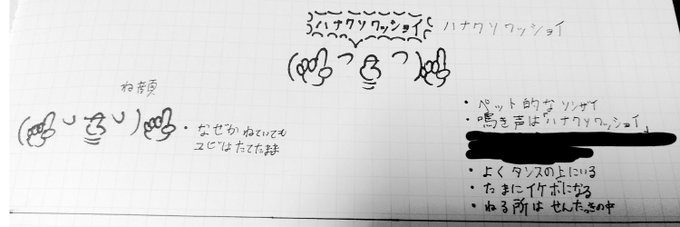 ハナクソワッショイ
ハナクソワッショイ
ね顔
・なぜかねていても
ユビはたてたまま
・ペット的なソンザイ
・鳴き声は「ハナクソワッショイ」
・よくタンスの上にいる
・たまにイケボになる
・ねる所はせんたっきの中